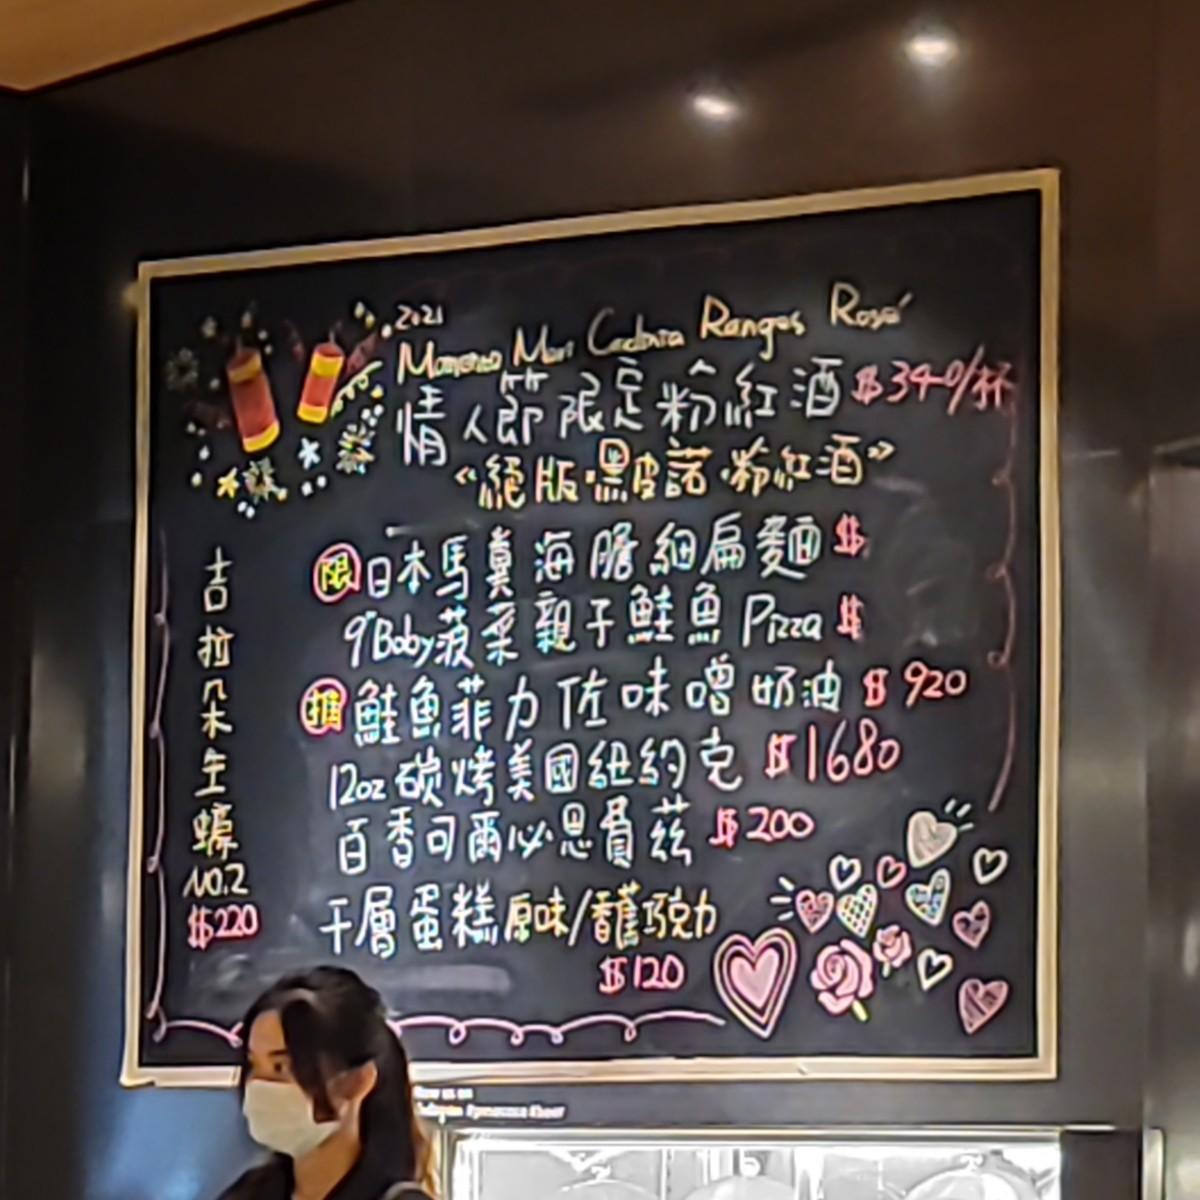 2021
Momento Mori Cadina Ranges Rosé
情人節限定粉紅酒 $340/杯
“絕版·黑皮諾·粉紅酒”
限 日本馬糞海膽細扁麵 $
9"Baby菠菜親子鮭魚 Pizza $
推 鮭魚菲力佐味噌奶油 $920
12oz 碳烤美國紐約克 $1680
百香可爾必思費茲 $200
千層蛋糕 原味/香蕉巧克力
$120
吉拉朵生蠔
NO.2
$220